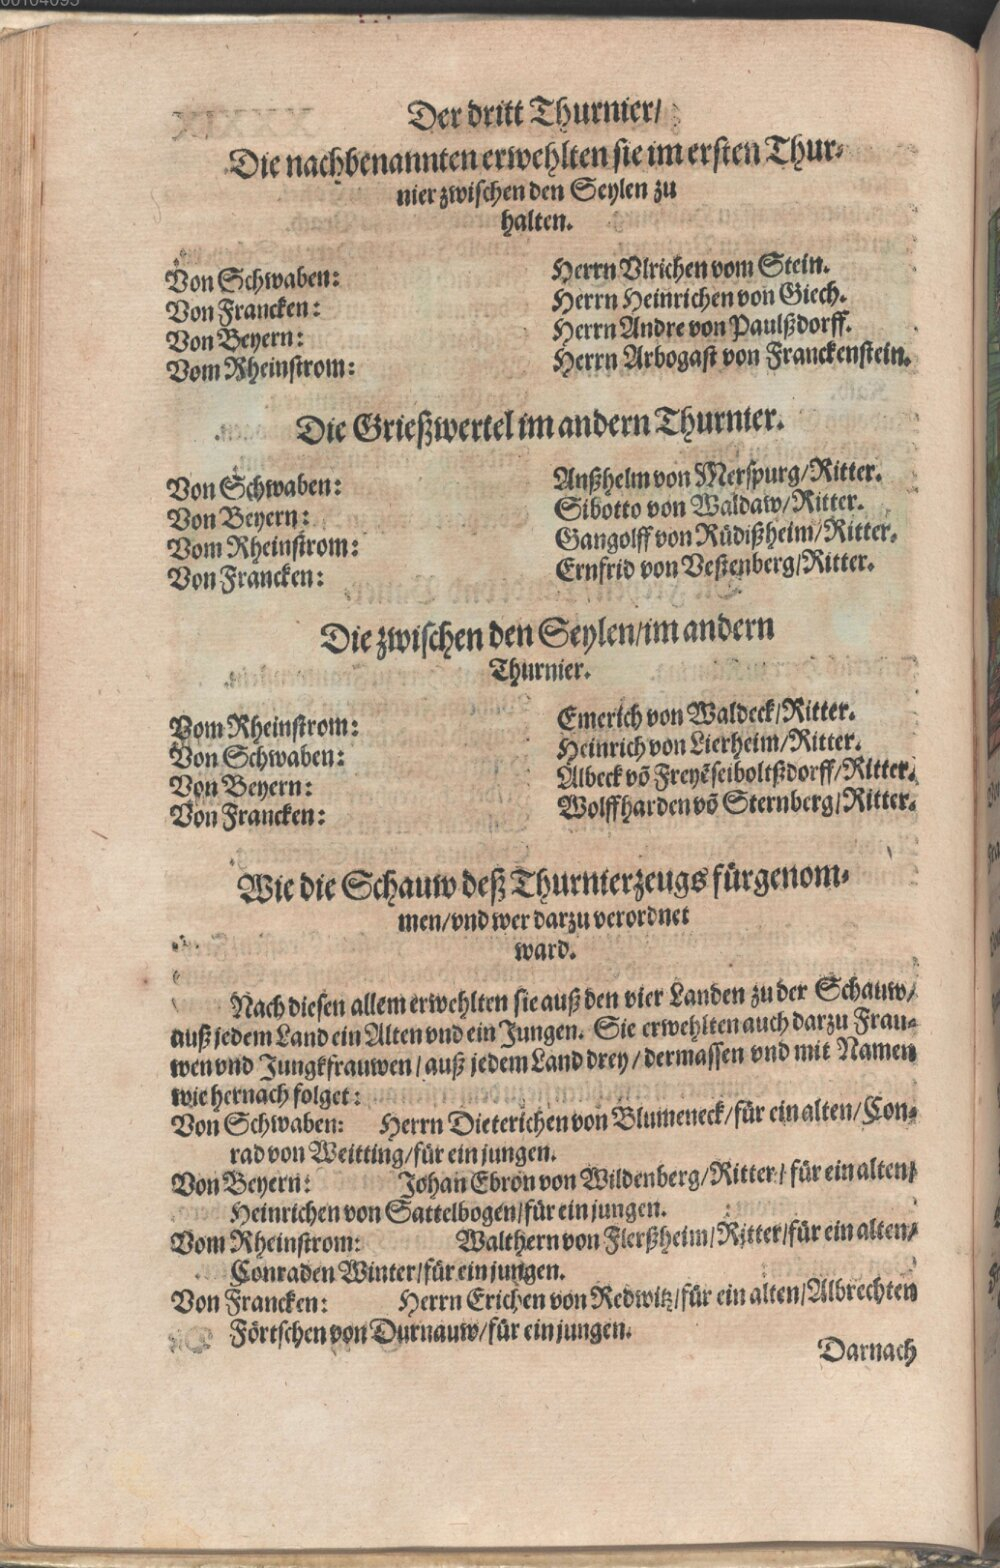 Der dritt Thurnier/
Die nachbenannten erwehlten sie im ersten Thur-
nier zwischen den Seylen zu
halten.
Von Schwaben: Herrn Vlrichen vom Stein.
Von Francken: Herrn Heinrichen von Giech.
Von Beyern: Herrn Andre von Paulßdorff.
Vom Rheinstrom: Herrn Arbogast von Franckenstein.
Die Grießwertel im andern Thurnier.
Von Schwaben: Anßhelm von Merspurg/Ritter.
Von Beyern: Sibotto von Waldaw/Ritter.
Vom Rheinstrom: Gangolff von Rüdißheim/Ritter.
Von Francken: Ernfrid von Vestenberg/Ritter.
Die zwischen den Seylen/im andern
Thurnier.
Vom Rheinstrom: Emerich von Waldeck/Ritter.
Von Schwaben: Heinrich von Lierheim/Ritter.
Von Beyern: Albeck võ Freyẽseiboltßdorff/Ritter.
Von Francken: Wolffharden võ Sternberg/Ritter.
Wie die Schauw deß Thurnierzeugs fürgenom-
men/vnd wer darzu verordnet
ward.
Nach diesen allem erwehlten sie auß den vier Landen zu der Schauw/
auß jedem Land ein Alten vnd ein Jungen. Sie erwehlten auch darzu Frau-
wen vnd Jungkfrauwen/auß jedem Land drey/dermassen vnd mit Namen
wie hernach folget:
Von Schwaben: Herrn Dieterichen von Blumeneck/für ein alten/Con-
rad von Weitting/für ein jungen.
Von Beyern: Johan Ebron von Wildenberg/Ritter/für ein alten/
Heinrichen von Sattelbogen/für ein jungen.
Vom Rheinstrom: Walthern von Flerßheim/Ritter/für ein alten/
Conraden Winter/für ein jungen.
Von Francken: Herrn Erichen von Redwitz/für ein alten/Albrechten
Förtschen von Durnauw/für ein jungen.
Darnach